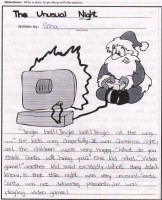 Directions: Write a story to go along with the picture.
The Unusual Night
Written by:
"Jingle bell! Jingle bell! Jingle all the way..."
the kids sang cheerfully. It was Christmas night,
and the children were very happy. "What do you
think Santa will bring you?" one kid asked. "Video
games!" another kid said excitedly. What they didn't
know is that this night was very unusual. Santa
Santa was not delivering presents; he was
playing video games!